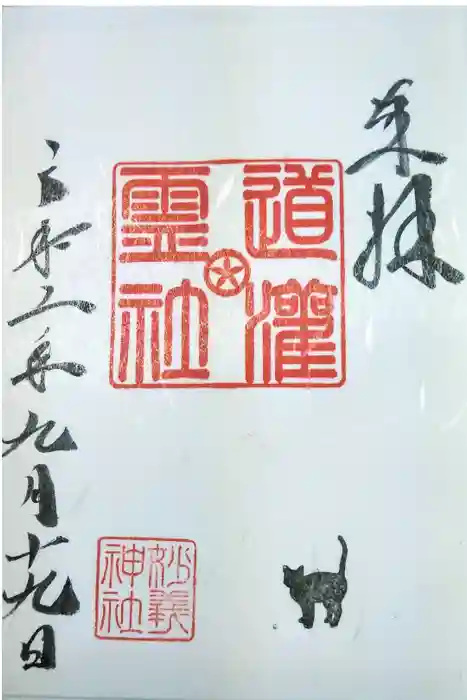 奉拝
道灌
霊社
令和二年九月十九日
妙義
神社